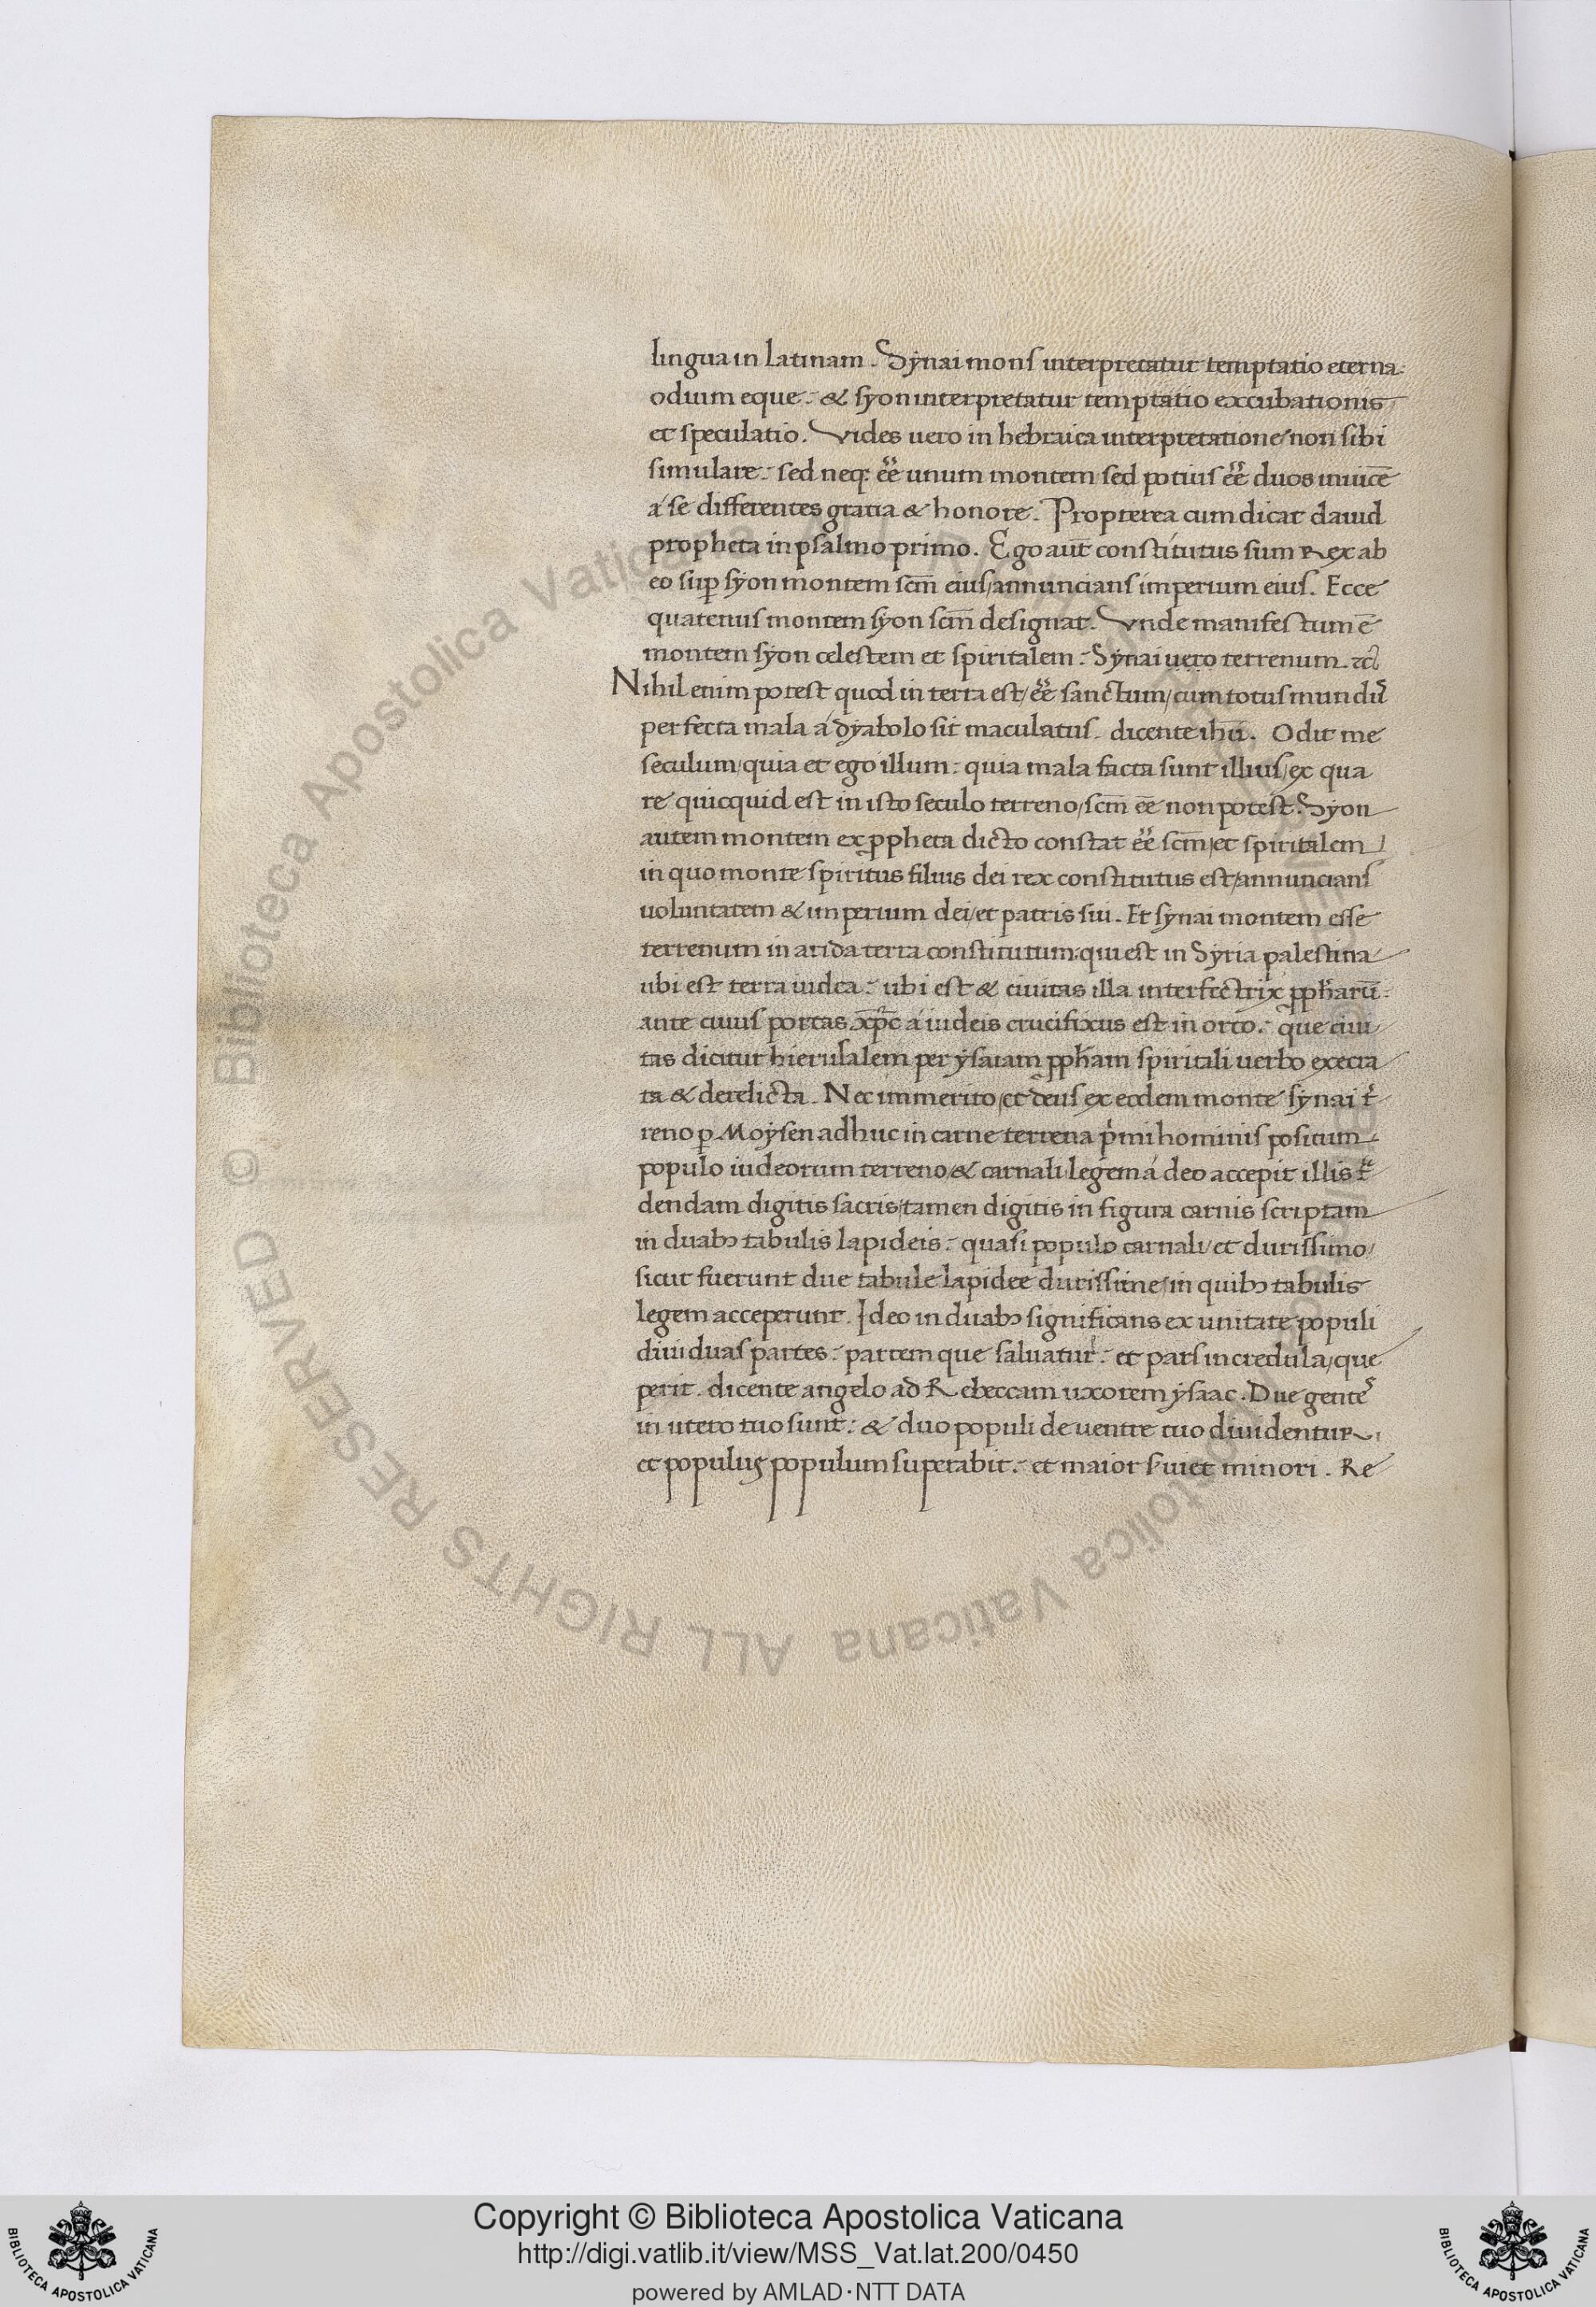 lingua in latinam. Synai mons interpretatur temptatio eterna.
odium eque: & syon interpretatur temptatio excubationis
et speculatio. Vides uero in hebraica interpretatione non sibi
simulare: sed neq; eē unum montem sed potius eē duos inuicē
á se differentes gratia & honore. Propterea cum dicat dauid
propheta in psalmo primo. Ego aut̄ constitutus sum Rex ab
eo sup̱ syon montem scm̄ eius/annuncians imperium eius. Ecce
quatenus montem syon scm̄ designat. Vnde manifestum ē
montem syon celestem et spiritalem: Synai uero terrenum.
Nihil enim potest quod in terra est/eē sanctum/cum totus mundus
perfecta mala á dyabolo sit maculatus. dicente ihū. Odit me
seculum/quia et ego illum: quia mala facta sunt illius/ex qua
re quicquid est in isto seculo terreno/scm̄ eē non potest. Syon
autem montem ex ꝓpheta dicto constat eē scm̄/et spiritalem
in quo monte spiritus filius dei rex constitutus est/annuncians
uoluntatem & imperium dei/et patris sui. Et synai montem esse
terrenum in arida terra constitutum: qui est in Syria palestina
ubi est terra iudea: ubi est & ciuitas illa interfectrix ꝓpharū.
ante cuius portas xp̄c á iudeis crucifixus est in orto: que ciui
tas dicitur hierusalem per ysaiam ꝓpham spiritali uerbo execra
ta & derelicta. Nec immerito/et deus ex eodem monte synai t̓
reno ꝑ Moysen adhuc in carne terrena p̓mi hominis positum
populo iudeorum terreno/& carnali legem á deo accepit illis t̓
dendam digitis sacris/tamen digitis in figura carnis scriptam
in duabꝫ tabulis lapideis: quasi populo carnali/et durissimo/
sicut fuerunt due tabule lapidee durissime/in quibꝫ tabulis
legem acceperunt. Ideo in duabꝫ significans ex unitate populi
diui duas partes: partem que saluatur: et pars incredula/que
perit. dicente angelo ad Rebeccam uxorem ysaac. Due gentes
in utero tuo sunt: & duo populi de uentre tuo diuidentur.
et populus populum superabit: et maior s̓uiet minori. Re
Copyright © Biblioteca Apostolica Vaticana
http://digi.vatlib.it/view/MSS_Vat.lat.200/0450
powered by AMLAD·NTT DATA
BIBLIOTECA APOSTOLICA VATICANA
BIBLIOTECA APOSTOLICA VATICANA
© Biblioteca Apostolica Vaticana ALL RIGHTS RESERVED